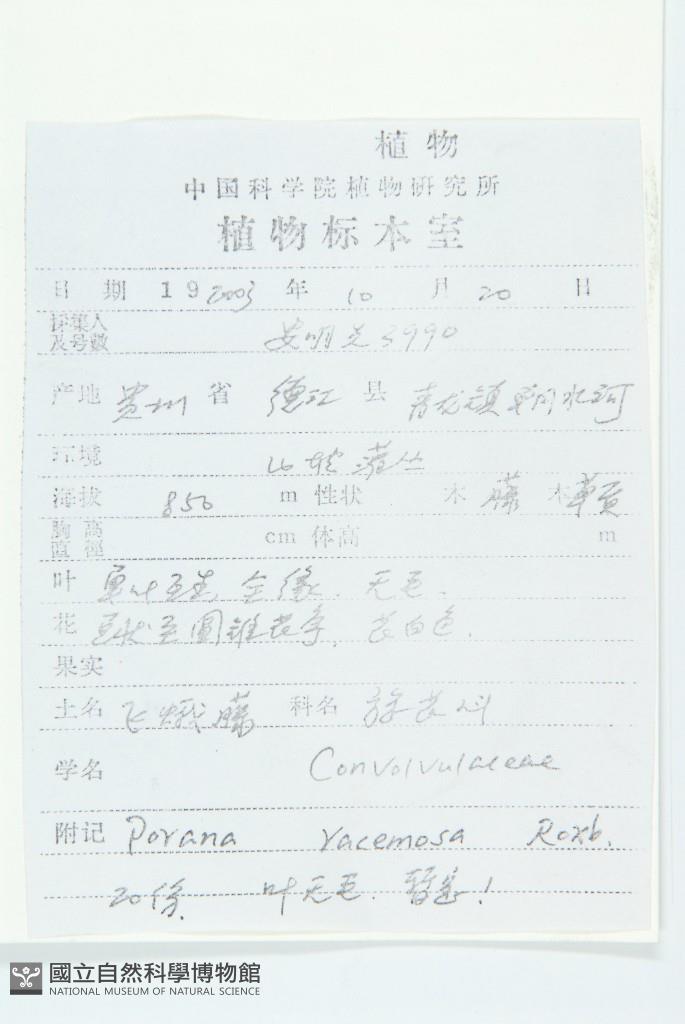 植物
中国科学院植物研究所
植物标本室
日期 19 2003 年 10 月 20 日
採集人
及号数 安明先 3990
产地 贵州 省 德江 县 青龙镇 朝水河
环境 山坡灌丛
海拔 850 m 性状 木 藤 木 草质
胸高
直徑 cm 体高 m
叶 单叶互生, 全缘. 无毛.
花 圆锥花序, 花白色.
果实
土名 飞蛾藤 科名 旋花科
学名 Convolvulaceae
附记 Porana racemosa Roxb.
20份. 叶无毛.
國立自然科學博物館
NATIONAL MUSEUM OF NATURAL SCIENCE